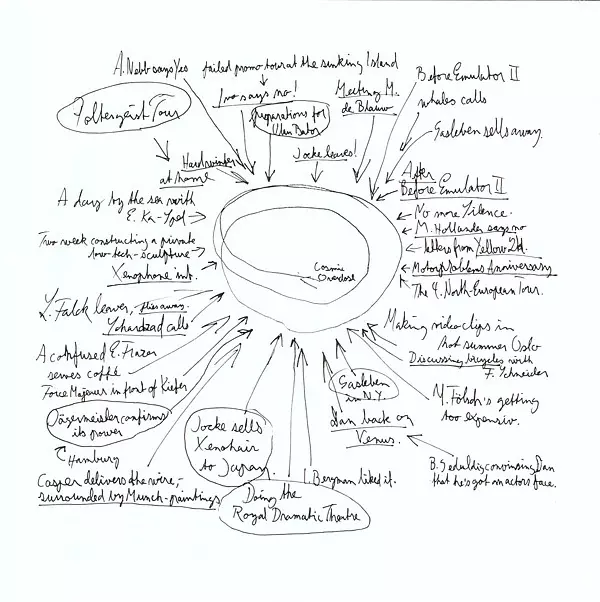 A. Nebb says Yes
failed promo tour at the sinking Island
Ino says no!
Poltergeist Tour
preparations for
Ulan Bator
Meeting M.
de Blauw
Before Emulator II
whales calls
Gasleben sells away.
Jocke leaves!
Hardwinter
at home
After
Before Emulator II
A day by the sea with
E. Ka-Spel
No more Silence.
M. Hollander says no
letters from Yellow 2d.
Two week constructing a private
low-tech-sculpture
Motorproblems Anniversary
Xenophone int.
Cosmic
Overdose
The 4. North-European Tour.
L. Falck leaver, flies away.
Schardzad calls
Making videoclips in
hot summer Oslo
Discussing bicycles with
F. Schneider
A confused E. Frazer
serves coffé
Force Majeure in front of Kiefer
Gasleben
in N.Y.
M. Fölsch's getting
too expensiv.
Jägermeister confirms
its power
Dan back on
Venus.
Jocke sells
Xenohair
to Japan.
Hamburg
B. convinsing Dan
that he's got an actors face.
Casper delivers the wire,-
surrounded by Munch-paintings
I. Bergman liked it.
Doing the
Royal Dramatic Theatre